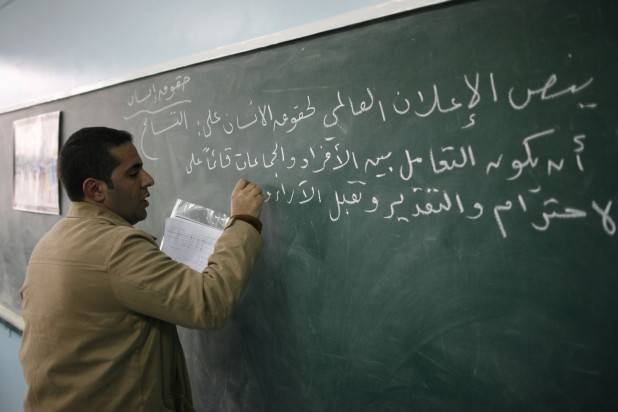 حقوق إنسان
ينص الإعلان العالمي لحقوق الانسان على: التسامح
أن يكون التعامل بين الأفراد والجماعات قائماً على
الاحترام والتقدير وتقبل الآراء